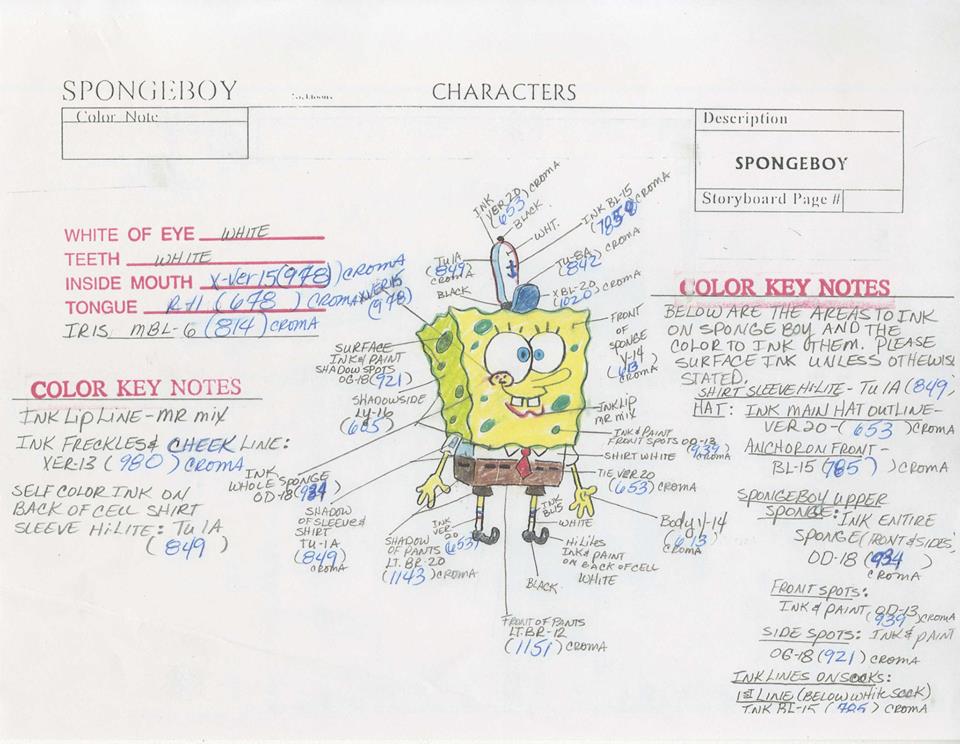 SPONGEBOY
CHARACTERS
Color Note
Description
SPONGEBOY
Storyboard Page #
WHITE OF EYE WHITE
TEETH WHITE
INSIDE MOUTH X-VER15 (978) CROMA
TONGUE R-11 (678) CROMA
IRIS MBL-6 (814) CROMA
COLOR KEY NOTES
INK LIP LINE - MR MIX
INK FRECKLES & CHEEK LINE:
XER-13 (980) CROMA
SELF COLOR INK ON
BACK OF CELL SHIRT
SLEEVE HILITE: TU 1A
(849)
INK
VER-20
(653) CROMA
BLACK
WHT.
INK BL-15
CROMA
TU-8A
(842) CROMA
XBL-20
(1020) CROMA
TU1A
(849)
CROMA
BLACK
XVER15
(978)
SURFACE
INK & PAINT
SHADOW SPOTS
OG-18 (921)
SHADOWSIDE
LY-11
INK
WHOLE SPONGE
OD-18 (934)
SHADOW
OF SLEEVE &
SHIRT
TU-1A
(849)
CROMA
SHADOW
OF PANTS
LT. BR-20
(1143) CROMA
INK
VER-
20
(653)
FRONT
OF
SPONGE
V-14
(613)
CROMA
INK LIP
MR MIX
INK & PAINT
FRONT SPOTS OD-13
(939) CROMA
SHIRT WHITE
TIE VER 20
(653) CROMA
INK
WHITE
BODY V-14
(613)
CROMA
HILITES
INK & PAINT
ON BACK OF CELL
WHITE
BLACK
FRONT OF PANTS
LT. BR-12
(1151) CROMA
COLOR KEY NOTES
BELOW ARE THE AREAS TO INK
ON SPONGE BOY AND THE
COLOR TO INK THEM. PLEASE
SURFACE INK UNLESS OTHEWIS
STATED.
SHIRT SLEEVE HI-LITE - TU 1A (849)
HAT: INK MAIN HAT OUTLINE -
VER 20 - (653) CROMA
ANCHOR ON FRONT -
BL-15 (785) CROMA
SPONGEBOY UPPER
SPONGE: INK ENTIRE
SPONGE (FRONT & SIDES)
OD-18 (934)
CROMA
FRONT SPOTS:
INK & PAINT OD-13
(939) CROMA
SIDE SPOTS: INK & PAINT
OG-18 (921) CROMA
INK LINES ON SOCKS:
1ST LINE (BELOW WHITE SOCK)
INK BL-15 (785) CROMA